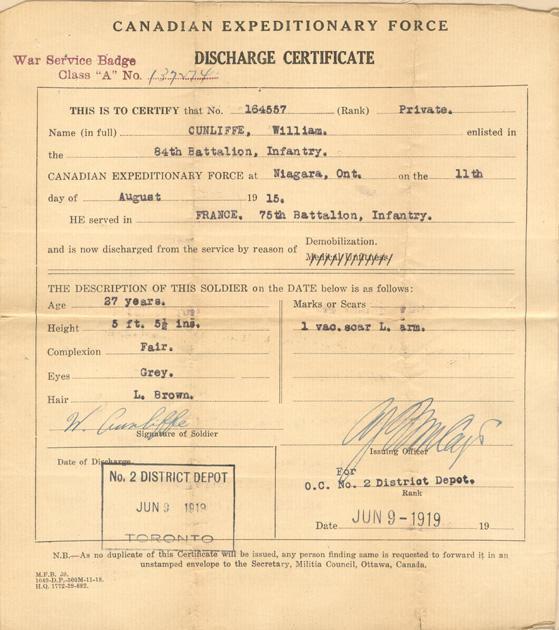 CANADIAN EXPEDITIONARY FORCE
War Service Badge
DISCHARGE CERTIFICATE
Class "A" No.
THIS IS TO CERTIFY that No. 164557 (Rank) Private.
Name (in full) CUNLIFFE, William. enlisted in
the 84th Battalion, Infantry.
CANADIAN EXPEDITIONARY FORCE at Niagara, Ont. on the 11th
day of August 19 15.
HE served in FRANCE. 75th Battalion, Infantry.
and is now discharged from the service by reason of Demobilization.
Medical Unfitness
THE DESCRIPTION OF THIS SOLDIER on the DATE below is as follows:
Age 27 years. Marks or Scars
Height 5 ft. 5½ ins. 1 vac. scar L. arm.
Complexion Fair.
Eyes Grey.
Hair L. Brown.
W. Cunliffe
Signature of Soldier
Issuing Officer
Date of Discharge
For
O.C. No. 2 District Depot.
Rank
No. 2 DISTRICT DEPOT
JUN 9 1919
TORONTO
Date JUN 9-1919 19
N.B.—As no duplicate of this Certificate will be issued, any person finding same is requested to forward it in an
unstamped envelope to the Secretary, Militia Council, Ottawa, Canada.
M.F.B.
H.Q. 1772-39-882.